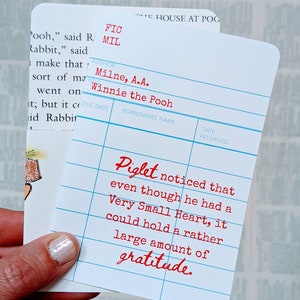 THE HOUSE AT POOH
FIC
MIL
AUTHOR
Milne, A.A.
Winnie the Pooh
DUE DATE BORROWERS NAME DATE RETURNED
Piglet noticed that
even though he had a
Very Small Heart, it
could hold a rather
large amount of
gratitude.
Rabbit,"
Rabbit,"
make that s
sort of ma
went on
it; but it co
said Rabbit